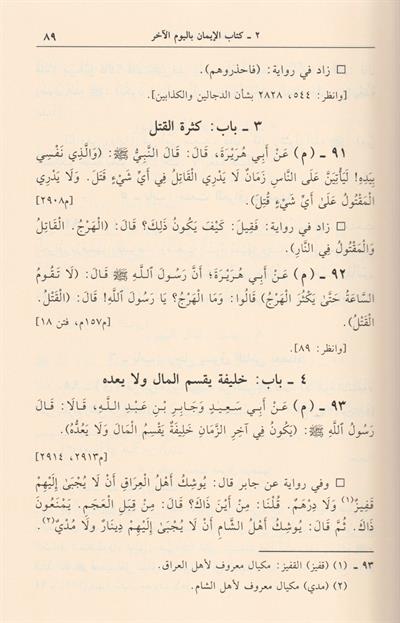 ٢ ـ كتاب الإيمان باليوم الآخر ٨٩
□ زاد في رواية: (فاحذروهم).
[وانظر: ٥٤٤، ٢٨٢٨ بشأن الدجالين والكذابين].
٣ ـ باب: كثرة القتل
٩١ ـ (م) عَنْ أَبِي هُرَيْرَةَ، قَالَ: قَالَ النَّبِيُّ ﷺ: (وَالَّذِي نَفْسِي
بِيَدِهِ! لَيَأْتِيَنَّ عَلَى النَّاسِ زَمَانٌ لَا يَدْرِي الْقَاتِلُ فِي أَيِّ شَيْءٍ قَتَلَ. وَلَا يَدْرِي
الْمَقْتُولُ عَلَىٰ أَيِّ شَيْءٍ قُتِلَ). [م٢٩٠٨]
□ زاد في رواية: فَقِيلَ: كَيْفَ يَكُونُ ذَلِكَ؟ قَالَ: (الْهَرْجُ. الْقَاتِلُ
وَالْمَقْتُولُ فِي النَّارِ).
٩٢ ـ (م) عَنْ أَبِي هُرَيْرَةَ؛ أَنَّ رَسُولَ اللَّهِ ﷺ قَالَ: (لَا تَقُومُ
السَّاعَةُ حَتَّىٰ يَكْثُرَ الْهَرْجُ) قَالُوا: وَمَا الْهَرْجُ؟ يَا رَسُولَ اللَّهِ! قَالَ: (الْقَتْلُ.
الْقَتْلُ). [م١٥٧م، فتن ١٨]
[وانظر: ٨٩].
٤ ـ باب: خليفة يقسم المال ولا يعده
٩٣ ـ (م) عَنْ أَبِي سَعِيدٍ وَجَابِرِ بْنِ عَبْدِ اللهِ، قَالَا: قَالَ
رَسُولُ اللَّهِ ﷺ: (يَكُونُ فِي آخِرِ الزَّمَانِ خَلِيفَةٌ يَقْسِمُ الْمَالَ وَلَا يَعُدُّهُ).
[م٢٩١٣، ٢٩١٤]
□ وفي رواية عن جابر قال: يُوشِكُ أَهْلُ الْعِرَاقِ أَنْ لَا يُجْبَىٰ إِلَيْهِمْ
قَفِيزٌ(١) وَلَا دِرْهَمٌ. قُلْنَا: مِنْ أَيْنَ ذَاكَ؟ قَالَ: مِنْ قِبَلِ الْعَجَمِ. يَمْنَعُونَ
ذَاكَ. ثُمَّ قَالَ: يُوشِكُ أَهْلُ الشَّامِ أَنْ لَا يُجْبَىٰ إِلَيْهِمْ دِينَارٌ وَلَا مُدْيٌ(٢).
٩٣ ـ (١) (قفيز) القفيز: مكيال معروف لأهل العراق.
(٢) (مدي) مكيال معروف لأهل الشام.